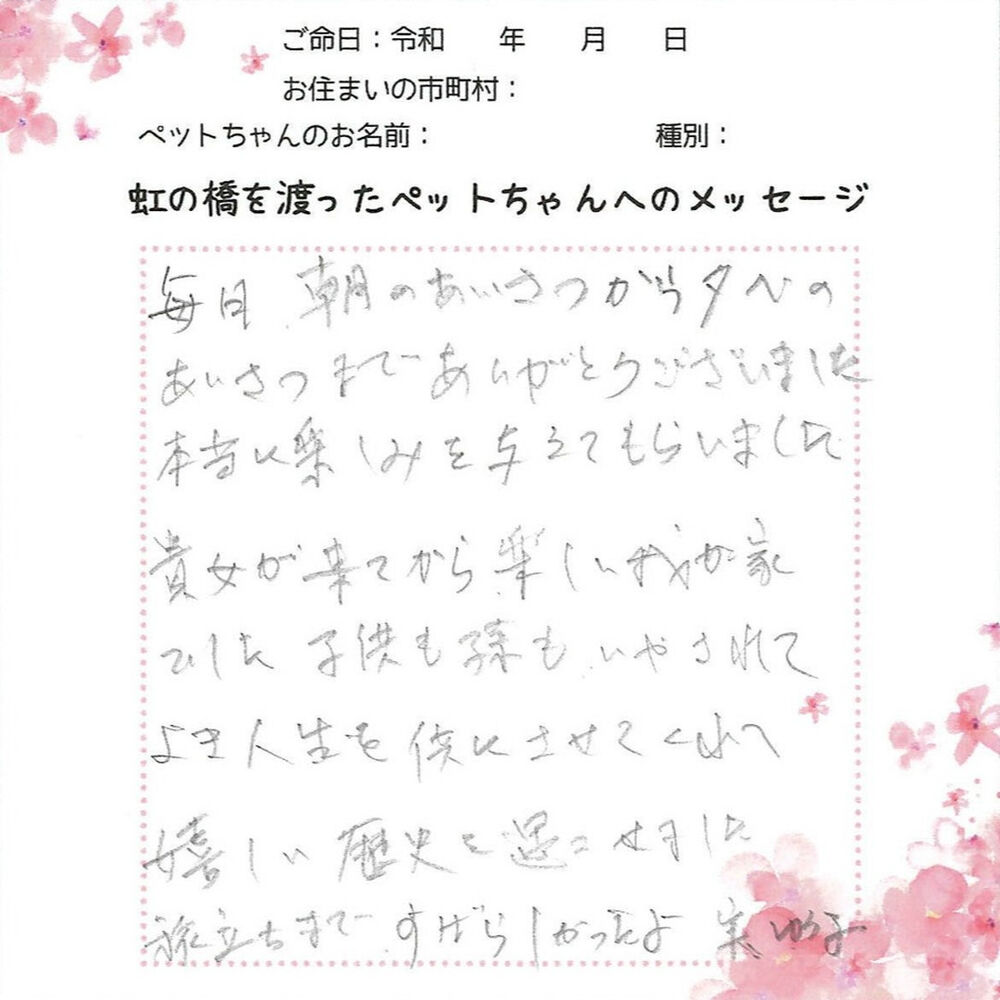 ご命日：令和　年　月　日
お住まいの市町村：
ペットちゃんのお名前：　種別：
虹の橋を渡ったペットちゃんへのメッセージ
毎日 朝のあいさつから夕べの
あいさつまでありがとうございました
本当に楽しみを与えてもらいました
貴女が来てから楽しい我が家
でした 子供も孫も いやされて
よき人生を供にさせてくれて
嬉しい歴史を過ごせました
旅立ちまで すばらしかったよ